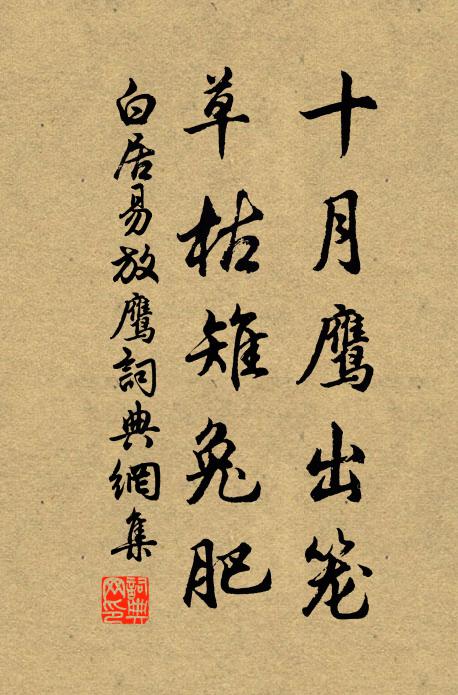 十月鹰出笼
草枯雉兔肥
白居易放鹰詞典網集
詞典网印